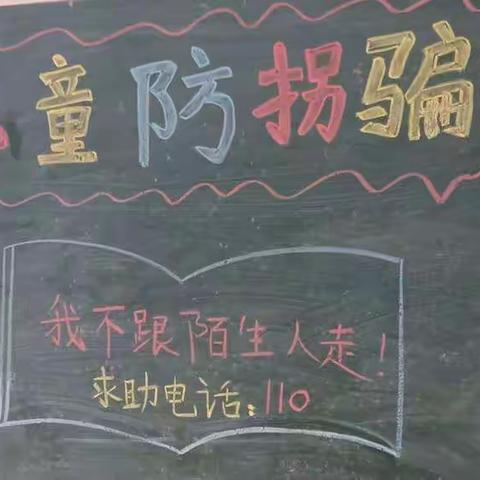 童防拐骗
我不跟陌生人走！
求助电话：110